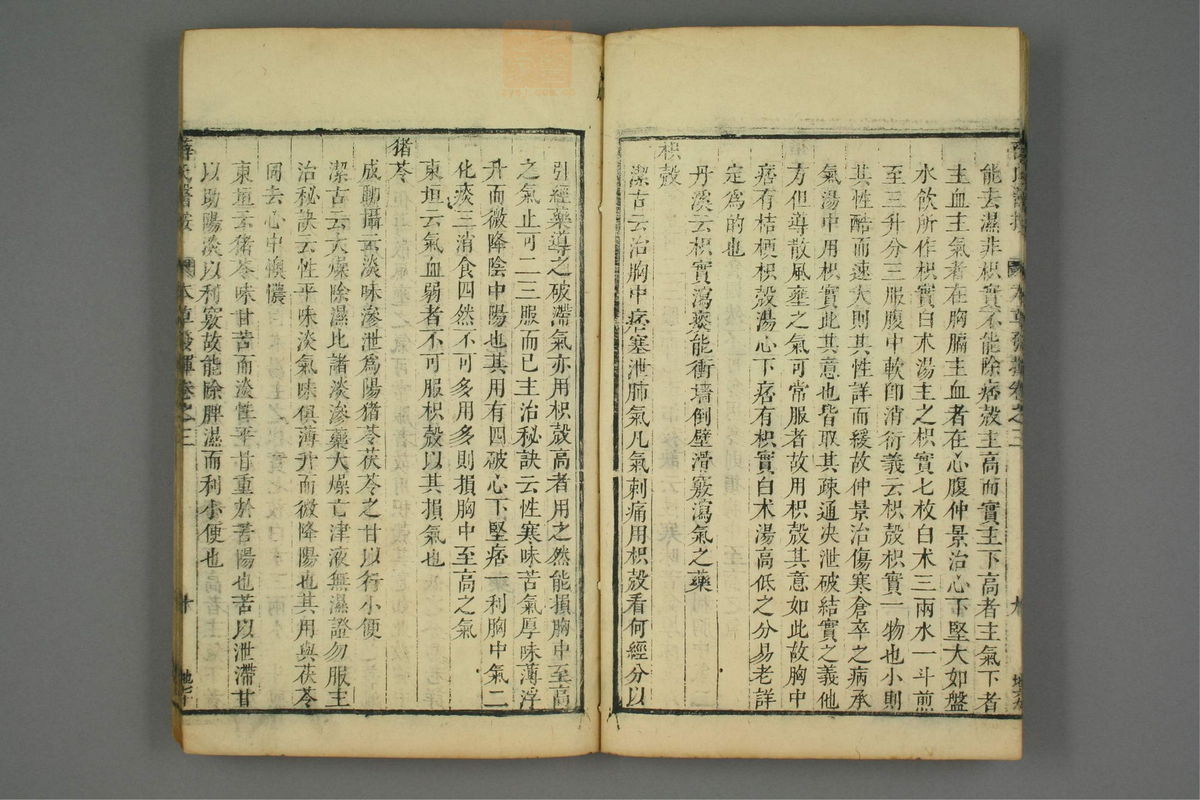 能去濕非枳實不能除痞殼主高而實主下高者主氣下者
主血主氣者在胸膈主血者在心腹仲景治心下堅大如盤
水飲所作枳實白术湯主之枳實七枚白术三兩水一斗煎
至三升分三服腹中軟即消衍義云枳殼枳實一物也小則
其性酷而速大則其性詳而緩故仲景治傷寒倉卒之病承
氣湯中用枳實此其意也皆取其疎通决泄破結實之義他
方但導散風壅之氣可常服者故用枳殼其意如此故胸中
痞有桔梗枳殼湯心下痞有枳實白术湯高低之分易老詳
定爲的也
丹溪云枳實瀉痰能衝墻倒壁滑竅瀉氣之藥
枳殼
潔古云治胸中痞塞泄肺氣凡氣刺痛用枳殼看何經分以
引經藥導之破滯氣亦用枳殼高者用之然能損胸中至高
之氣止可二三服而已主治秘訣云性寒味苦氣厚味薄浮
升而微降陰中陽也其用有四破心下堅痞一利胸中氣二
化痰三消食四然不可多用多則損胸中至高之氣
東垣云氣血弱者不可服枳殼以其損氣也
猪苓
成聊攝云淡味滲泄爲陽猪苓茯苓之甘以行小便
潔古云大燥除濕比諸淡滲藥大燥亡津液無濕證勿服主
治秘訣云性平味淡氣味俱薄升而微降陽也其用與茯苓
同去心中懊憹
東垣云猪苓味甘苦而淡性平甘重於苦陽也苦以泄滯甘
以助陽淡以利竅故能除脾濕而利小便也
本草發揮卷之三
十